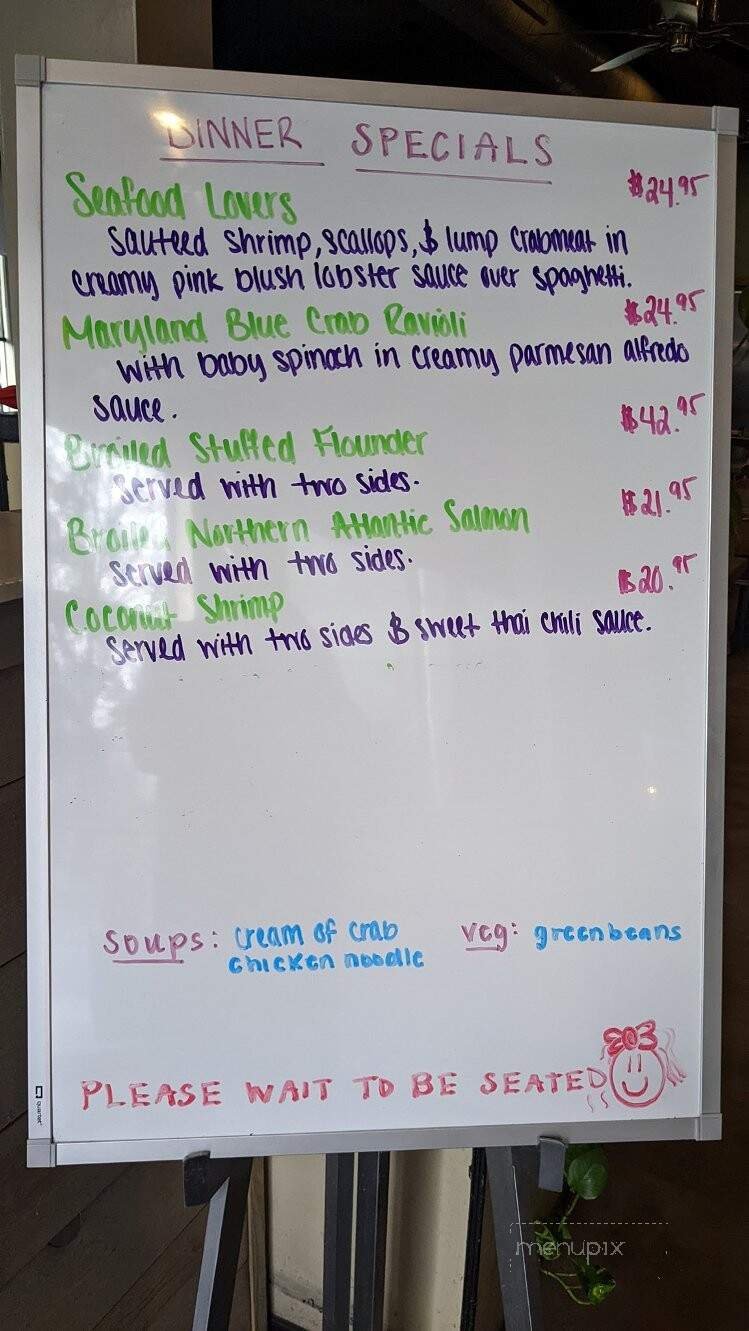 DINNER SPECIALS
Seafood Lovers $24.95
Sauteed shrimp, scallops, & lump crabmeat in
creamy pink blush lobster sauce over spaghetti.
Maryland Blue Crab Ravioli $24.95
with baby spinach in creamy parmesan alfredo
sauce.
Broiled Stuffed Flounder $42.95
Served with two sides.
Broiled Northern Atlantic Salmon $21.95
Served with two sides.
Coconut Shrimp $20.95
Served with two sides & sweet thai chili sauce.
Soups: cream of crab veg: greenbeans
chicken noodle
PLEASE WAIT TO BE SEATED
quartet
menupix